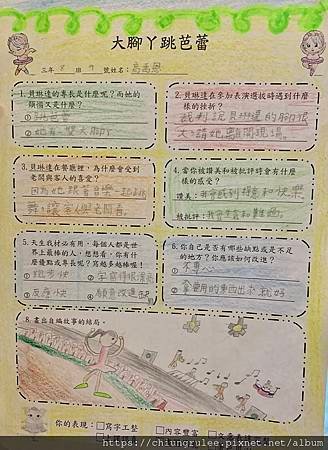 大腳丫跳芭蕾
三年8班9號姓名：
1.貝琳達的專長是什麼呢？而她的
煩惱又是什麼？
①跳芭蕾
②她有一雙大腳丫
2.貝琳達在參加表演選拔時遇到什麼
樣的挫折？
裁判說貝琳達的腳很
大，請她離開現場。
3.貝琳達在餐廳裡，為什麼會受到
老闆與客人的喜愛？
因為她跟著音樂一起跳
舞，讓客人與老闆喜
4.當你被讚美和被批評時會有什麼
樣的感受？
讚美：我會感到得意和快樂
被批評：我會生氣和難過
5.天生我材必有用，每個人都是世
界上最棒的人，想想看，你有什
麼優點或專長呢？寫越多越棒喔！
①跑步快
②字寫得很漂亮
③反應快
6.你自己是否有哪些缺點或是不足
的地方？你應該如何改進？
①不專心
②拿要用的東西出來就好
8.畫出自編故事的結局。
你的表現：□寫字工整 □內容豐富
https://chiungrulee.pixnet.net/album